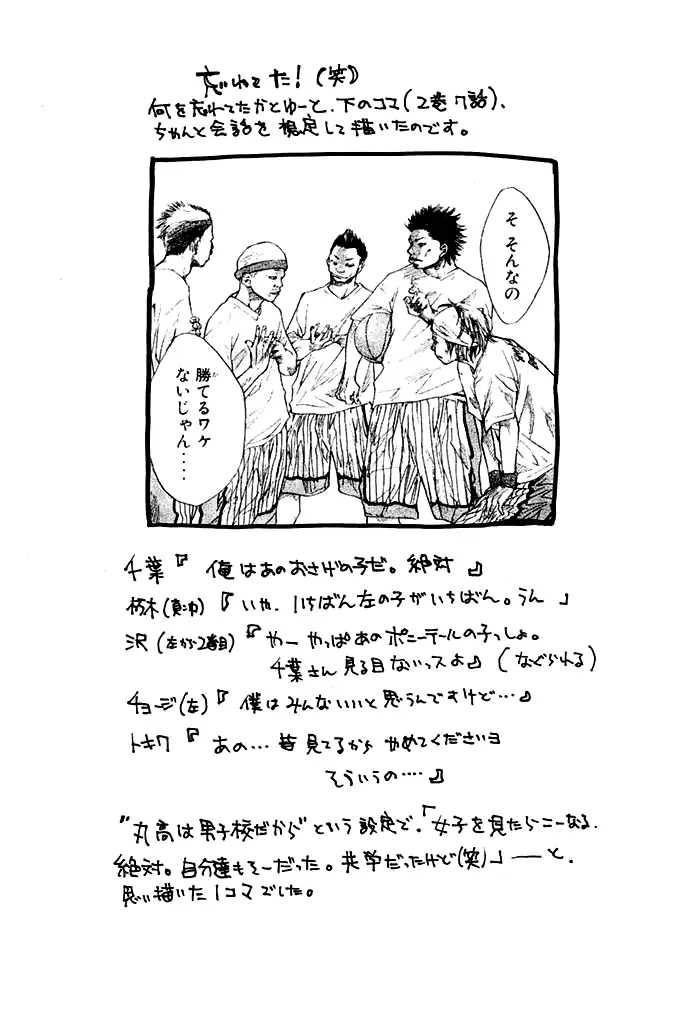 忘れてた!(笑)
何を忘れてたかとゆーと、下のコマ(2巻7話)、
ちゃんと会話を想定して描いたのです。
そ そんなの
勝てるワケ
ないじゃん‥‥
千葉『俺はあのおさげの子だ。絶対』
朽木(真ン中)『いや、1ちばん左の子がいちばん。うん』
沢(左から2番目)『やー やっぱあのポニーテールの子っしょ。
千葉さん見る目ないっスよ』(なぐられる)
チョージ(左)『僕はみんないいと思うんですけど…』
トキワ『あの…皆見てるから やめてくださいヨ
そういうの‥‥』
"丸高は男子校だから"という設定で、「女子を見たらこーなる。
絶対。自分達もそーだった。共学だったけど(笑)」――と、
思い描いた1コマでした。